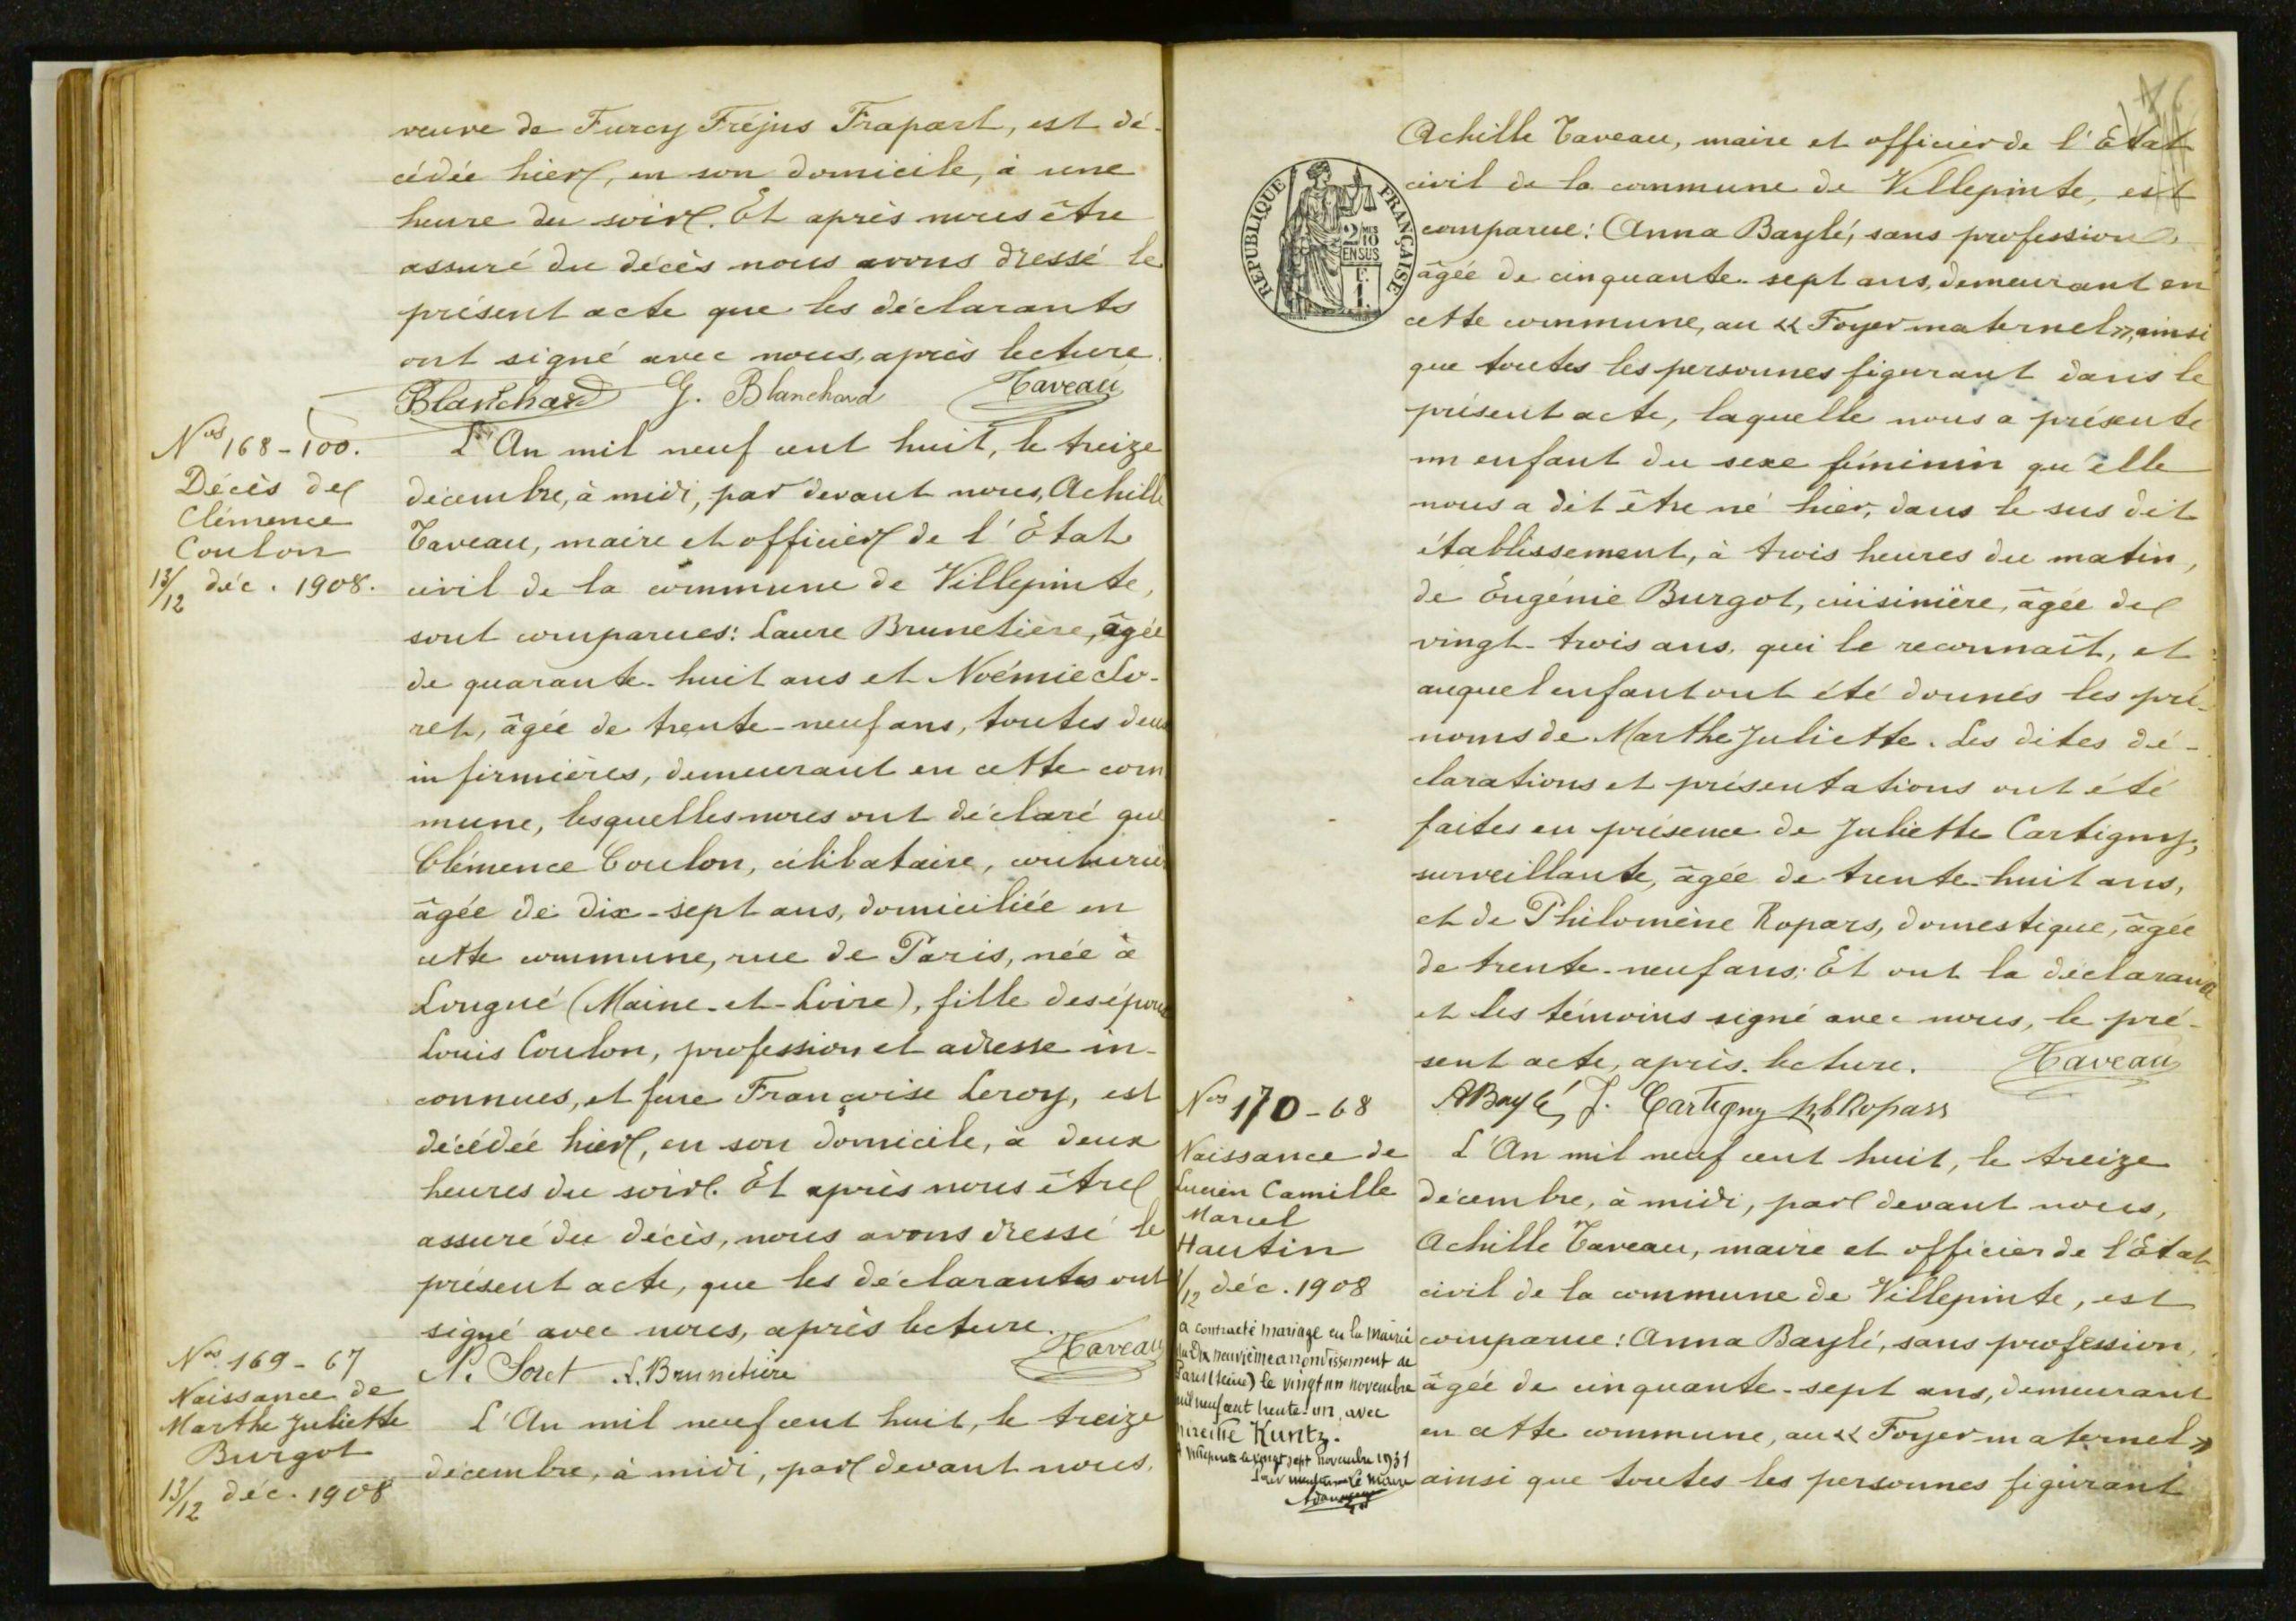 veuve de Furcy Fréjus Frapart, est dé-
cédée hier, en son domicile, à une
heure du soir. Et après nous être
assuré du décès nous avons dressé le
présent acte que les déclarants
ont signé avec nous, après lecture.
Blanchard G. Blanchard Taveau
Nos 168-100.
Décès de
Clémence
Coulon
13/12 déc. 1908.
L'An mil neuf cent huit, le treize
décembre, à midi, par devant nous, Achille
Taveau, maire et officier de l'Etat
civil de la commune de Villepinte,
sont comparues: Laure Brunetière, âgée
de quarante-huit ans et Noémie So-
ret, âgée de trente-neuf ans, toutes deux
infirmières, demeurant en cette com
mune, lesquelles nous ont déclaré que
Clémence Coulon, célibataire, couturièr
âgée de dix-sept ans, domiciliée en
cette commune, rue de Paris, née à
Longué (Maine-et-Loire), fille des époux
Louis Coulon, profession et adresse in-
connues, et feue Françoise Leroy, est
décédée hier, en son domicile, à deux
heures du soir. Et après nous être
assuré du décès, nous avons dressé le
présent acte, que les déclarantes ont
signé avec nous, après lecture.
N. Soret L. Brunetière Taveau
Nos 169-67
Naissance de
Marthe Juliette
Burgot
13/12 déc. 1908
L'An mil neuf cent huit, le treize
décembre, à midi, par devant nous,
Achille Taveau, maire et officier de l'Etat
civil de la commune de Villepinte, est
comparue: Anna Baylé, sans profession,
âgée de cinquante-sept ans, demeurant en
cette commune, au « Foyer maternel », ainsi
que toutes les personnes figurant dans le
présent acte, laquelle nous a présenté
un enfant du sexe féminin qu'elle
nous a dit être né hier, dans le sus dit
établissement, à trois heures du matin,
de Eugénie Burgot, cuisinière, âgée de
vingt-trois ans, qui le reconnaît, et
auquel enfant ont été donnés les pré-
noms de Marthe Juliette. Les dites dé-
clarations et présentations ont été
faites en présence de Juliette Cartigny,
surveillante, âgée de trente-huit ans,
et de Philomène Ropars, domestique, âgée
de trente-neuf ans. Et ont la déclarante
et les témoins signé avec nous, le pré-
sent acte, après lecture. Taveau
ABaylé, J. Cartigny Ropars
REPUBLIQUE FRANÇAISE
2/10 EN SUS
Nos 170-68
Naissance de
Lucien Camille
Marcel
Hautin
/12 déc. 1908
a contracté mariage en la mairie
du Dix neuvième arrondissement de
Paris (Seine) le vingt un novembre
mil neuf cent trente-un, avec
Mireille Kuntz.
Villepinte le vingt sept novembre 1931
Le Maire
L'An mil neuf cent huit, le treize
décembre, à midi, par devant nous,
Achille Taveau, maire et officier de l'Etat
civil de la commune de Villepinte, est
comparue: Anna Baylé, sans profession,
âgée de cinquante-sept ans, demeurant
en cette commune, au « Foyer maternel »
ainsi que toutes les personnes figurant